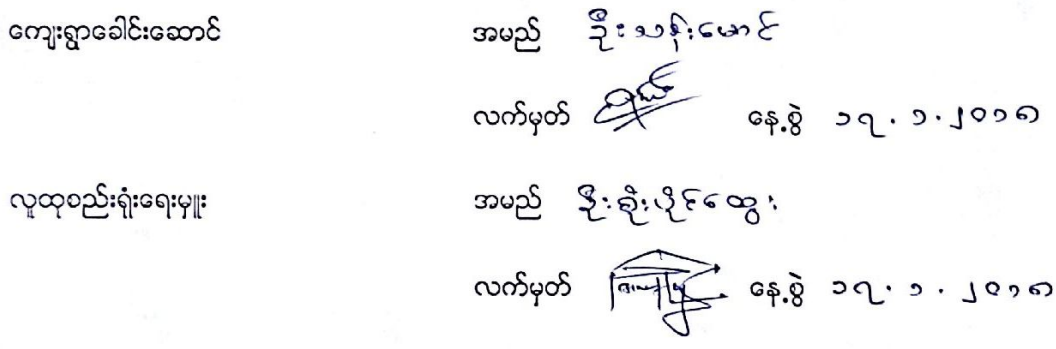 ကျေးရွာခေါင်းဆောင် အမည် ဦးသန်းမောင်
လက်မှတ် နေ့စွဲ ၁၇.၁.၂၀၁၈
လူထုစည်းရုံးရေးမှူး အမည် ဦးစိုးပိုင်ထွေး
လက်မှတ် နေ့စွဲ ၁၇.၁.၂၀၁၈